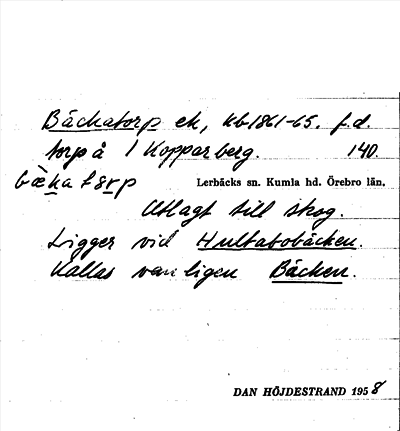 Bäckatorp ek, kb 1861-65. f.d.
torp å 1 Kopparberg. 140.
bæka torp Lerbäcks sn. Kumla hd. Örebro län.
Utlagt till skog.
Ligger vid Hultabobäcken.
Kallas vanligen Bäcken.
DAN HÖJDESTRAND 1958